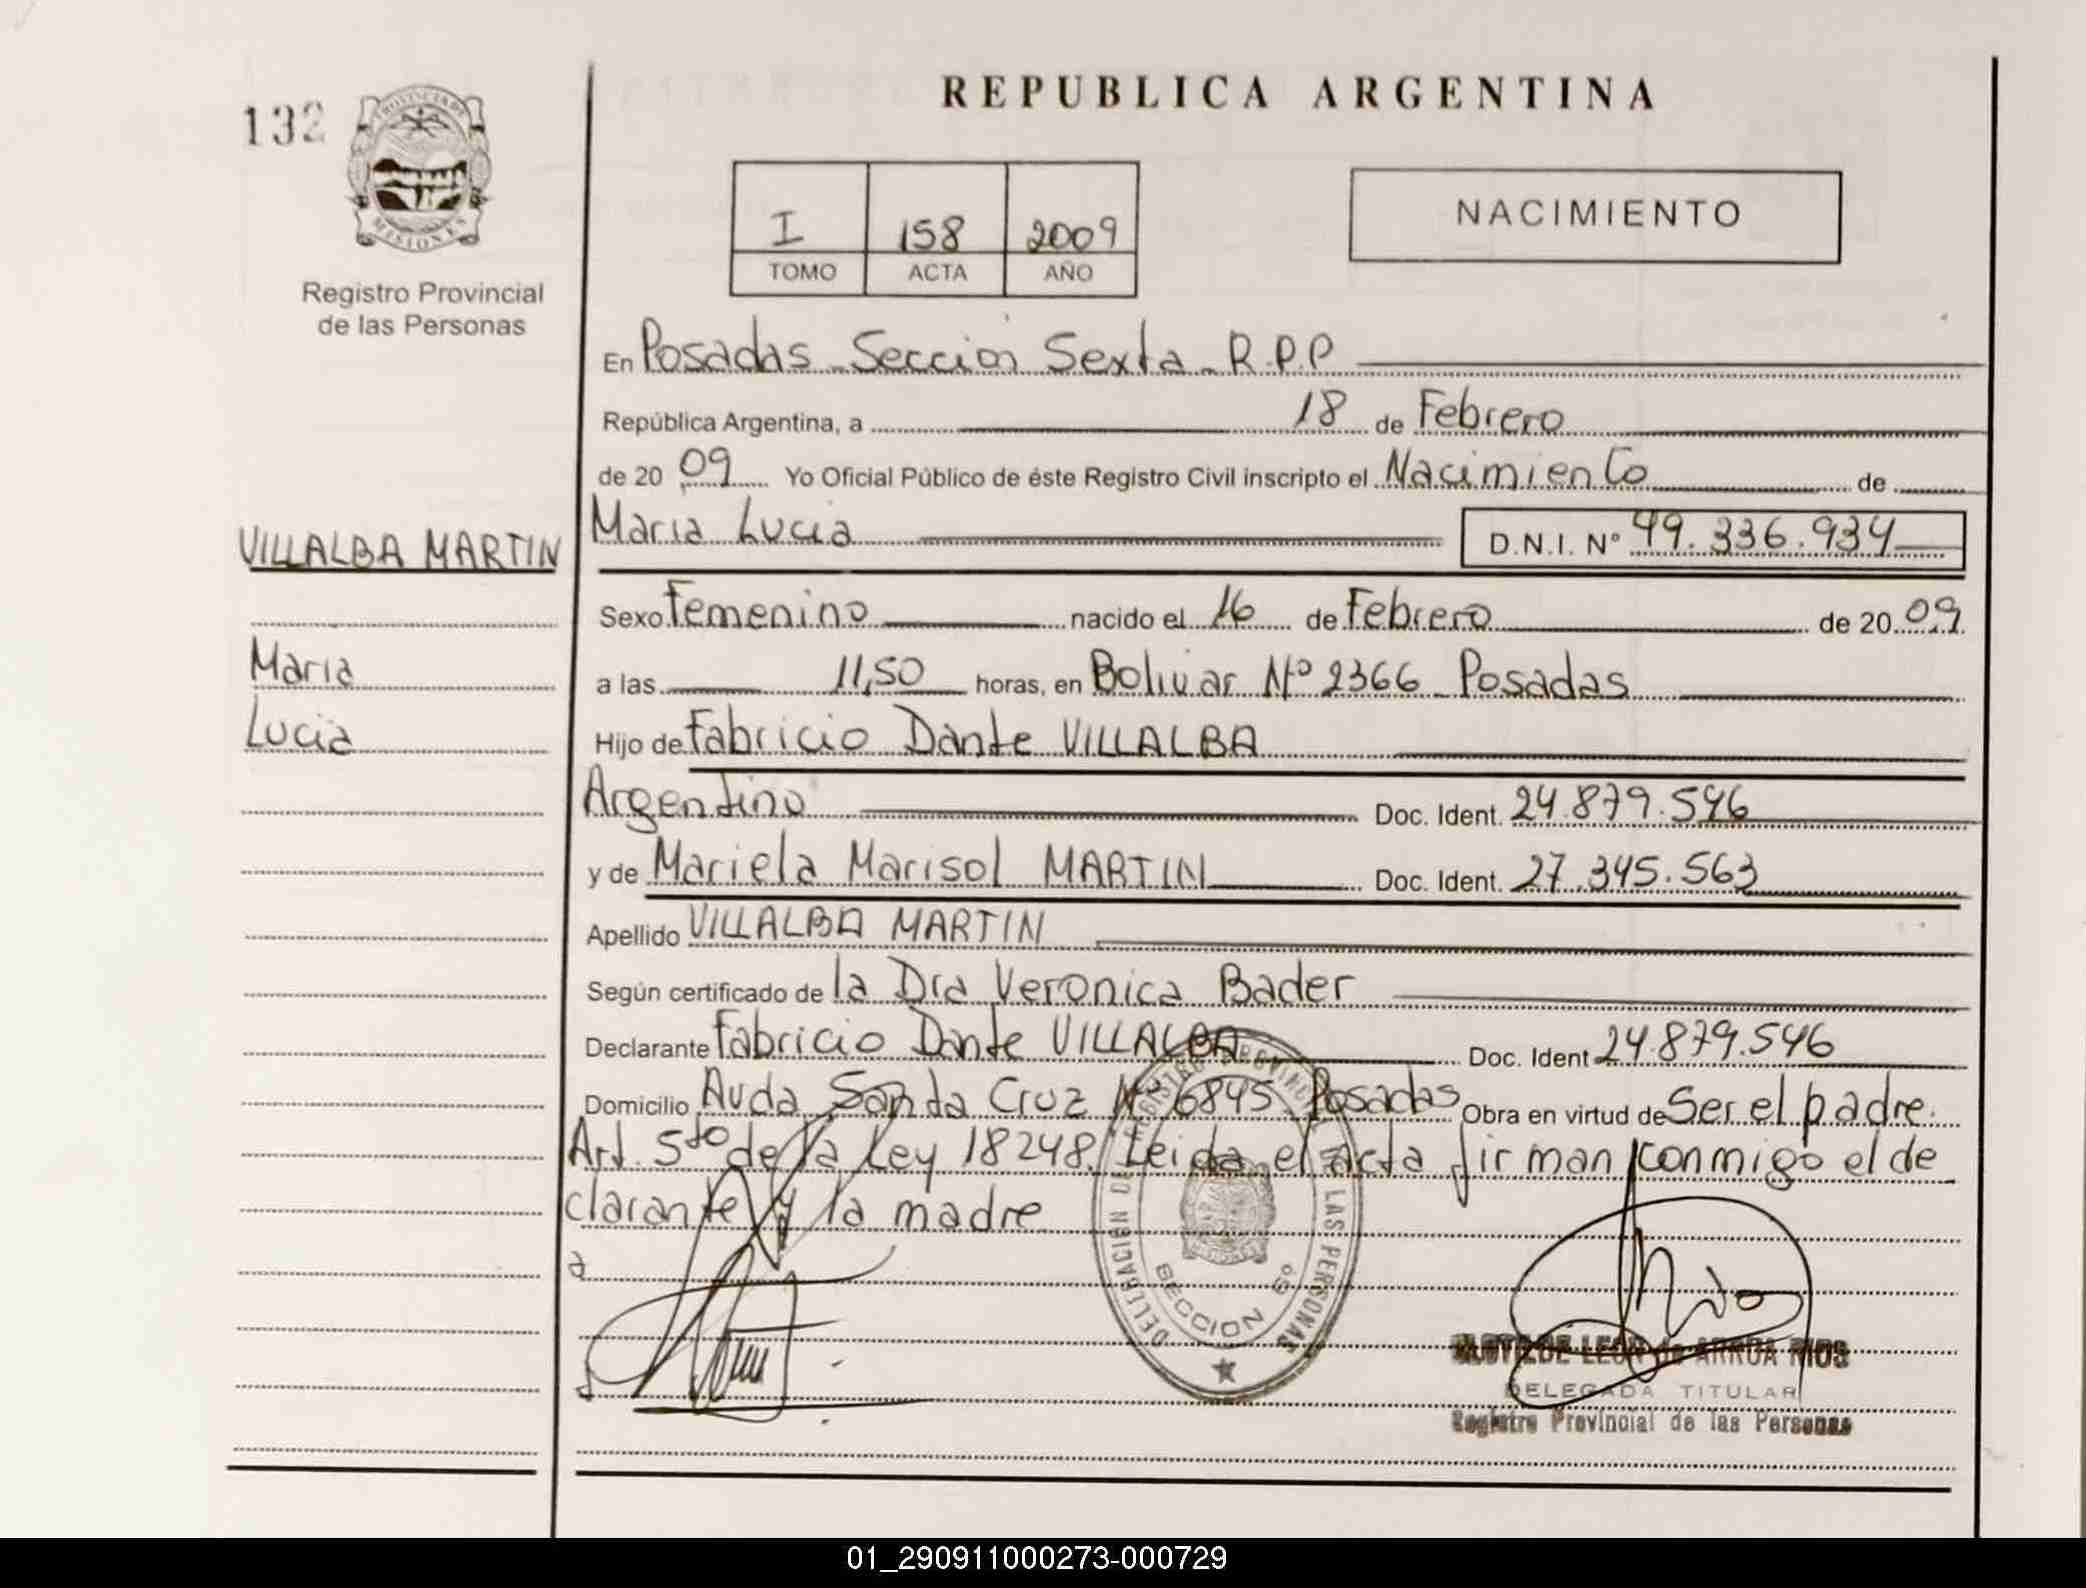 132
PROVINCIA DE
MISIONES
Registro Provincial
de las Personas
REPUBLICA ARGENTINA
I 158 2009
TOMO ACTA AÑO
NACIMIENTO
En Posadas - Seccion Sexta - R.P.P
República Argentina, a 18 de Febrero
de 20 09 Yo Oficial Público de éste Registro Civil inscripto el Nacimiento de
VILLALBA MARTIN Maria Lucia D.N.I. Nº 49.336.934
Sexo Femenino nacido el 16 de Febrero de 20 09
Maria a las 11,50 horas, en Bolivar Nº 2366 - Posadas
Lucia Hijo de Fabricio Dante VILLALBA
Argentino Doc. Ident. 24.879.546
y de Mariela Marisol MARTIN Doc. Ident. 27.345.563
Apellido VILLALBA MARTIN
Según certificado de la Dra Veronica Bader
Declarante Fabricio Dante VILLALBA Doc. Ident 24.879.546
Domicilio Avda Santa Cruz Nº 6845 Posadas Obra en virtud de Ser el padre.
Art. 5to de la Ley 18248. Leida el acta firman conmigo el de
clarante y la madre
DELEGACION DEL REGISTRO PROVINCIAL DE LAS PERSONAS
SECCION 6º
CLOTILDE LEON de ARRUA RIOS
DELEGADA TITULAR
Registro Provincial de las Personas
01_290911000273-000729